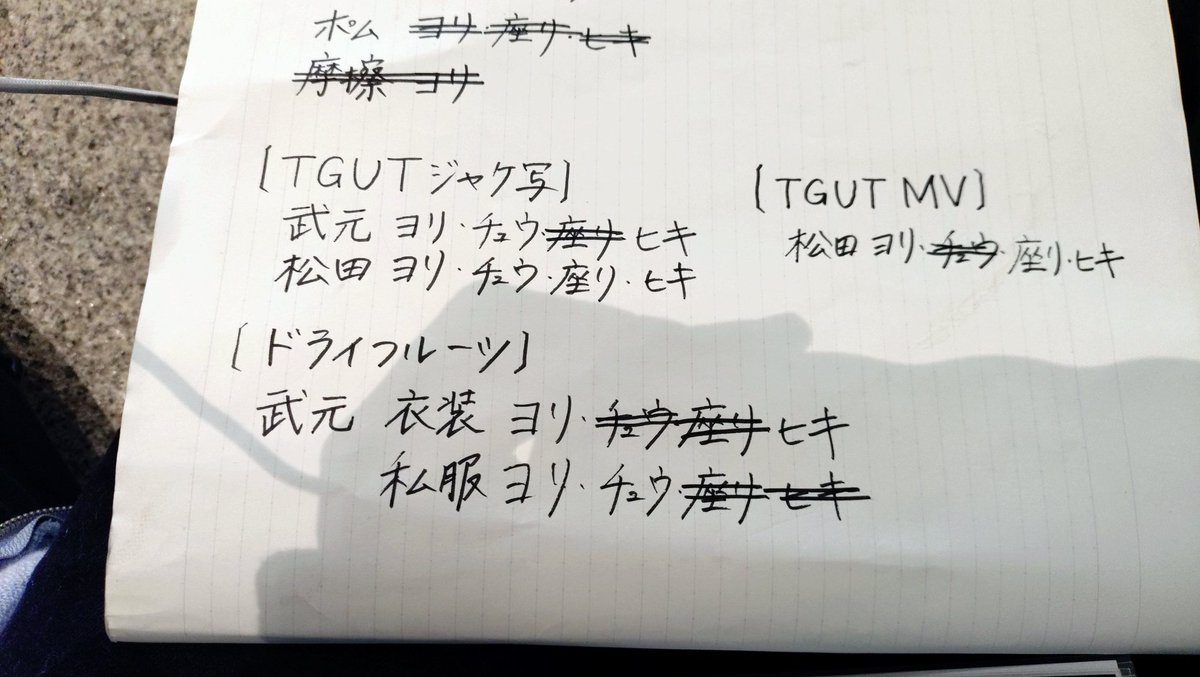 ポム ヨリ・座り・ヒキ
摩擦 ヨリ
[TGUTジャケ写]
武元 ヨリ・チュウ・座り ヒキ
松田 ヨリ・チュウ・座り・ヒキ
[TGUT MV]
松田 ヨリ・チュウ・座り・ヒキ
[ドライフルーツ]
武元 衣装 ヨリ・チュウ・座り ヒキ
私服 ヨリ・チュウ・座り・ヒキ